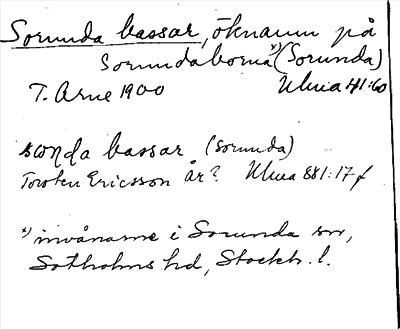 Sorunda bassar, öknamn på
Sorundaborna x) (Sorunda)
T. Arne 1900 Ulma 41:60
sornda bassar (Sorunda)
Torsten Ericsson år? Ulma 881:17 f
x) invånarne i Sorunda sn,
Sotholms hd, Stockh. l.